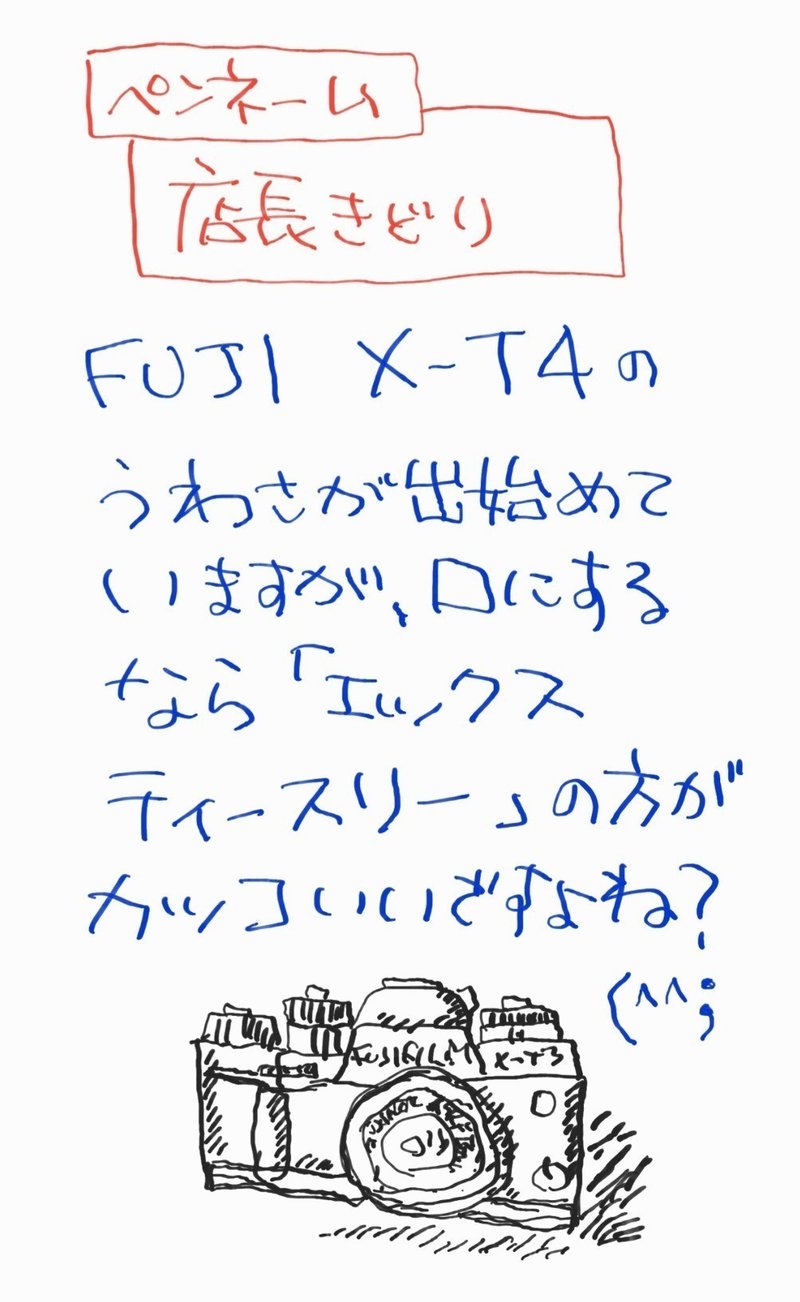 ペンネーム
店長きどり
FUJI X-T4の
うわさが出始めて
いますが、口にする
なら「エックス
ティースリー」の方が
カッコいいですよね?
(^^;
FUJIFILM X-T3